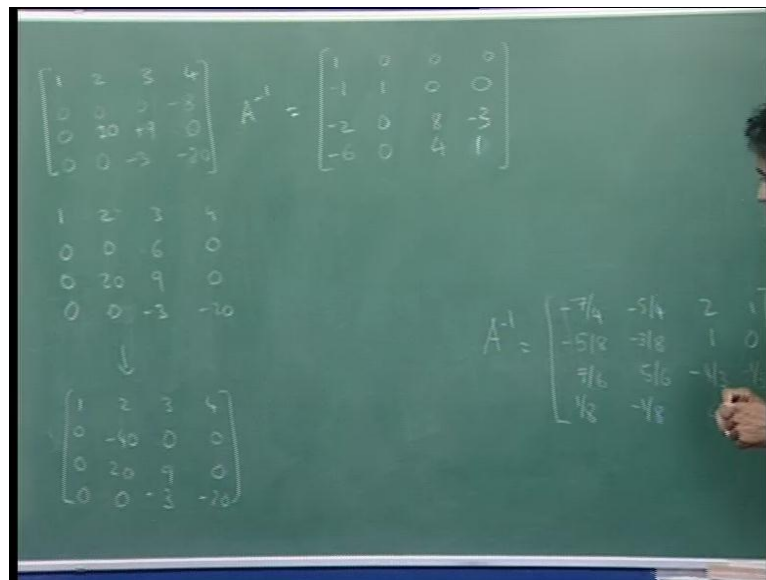 1 2 3 4
0 0 0 -3
0 20 +9 0
0 0 -3 -20
A⁻¹ =
1 0 0 0
-1 1 0 0
-2 0 8 -3
-6 0 4 1
1 2 3 4
0 0 6 0
0 20 9 0
0 0 -3 -20
↓
1 2 3 4
0 -40 0 0
0 20 9 0
0 0 -3 -20
A⁻¹ =
-7/4 -5/4 2 1
-5/8 -3/8 1 0
7/6 5/6 -4/3
1/8 -1/8